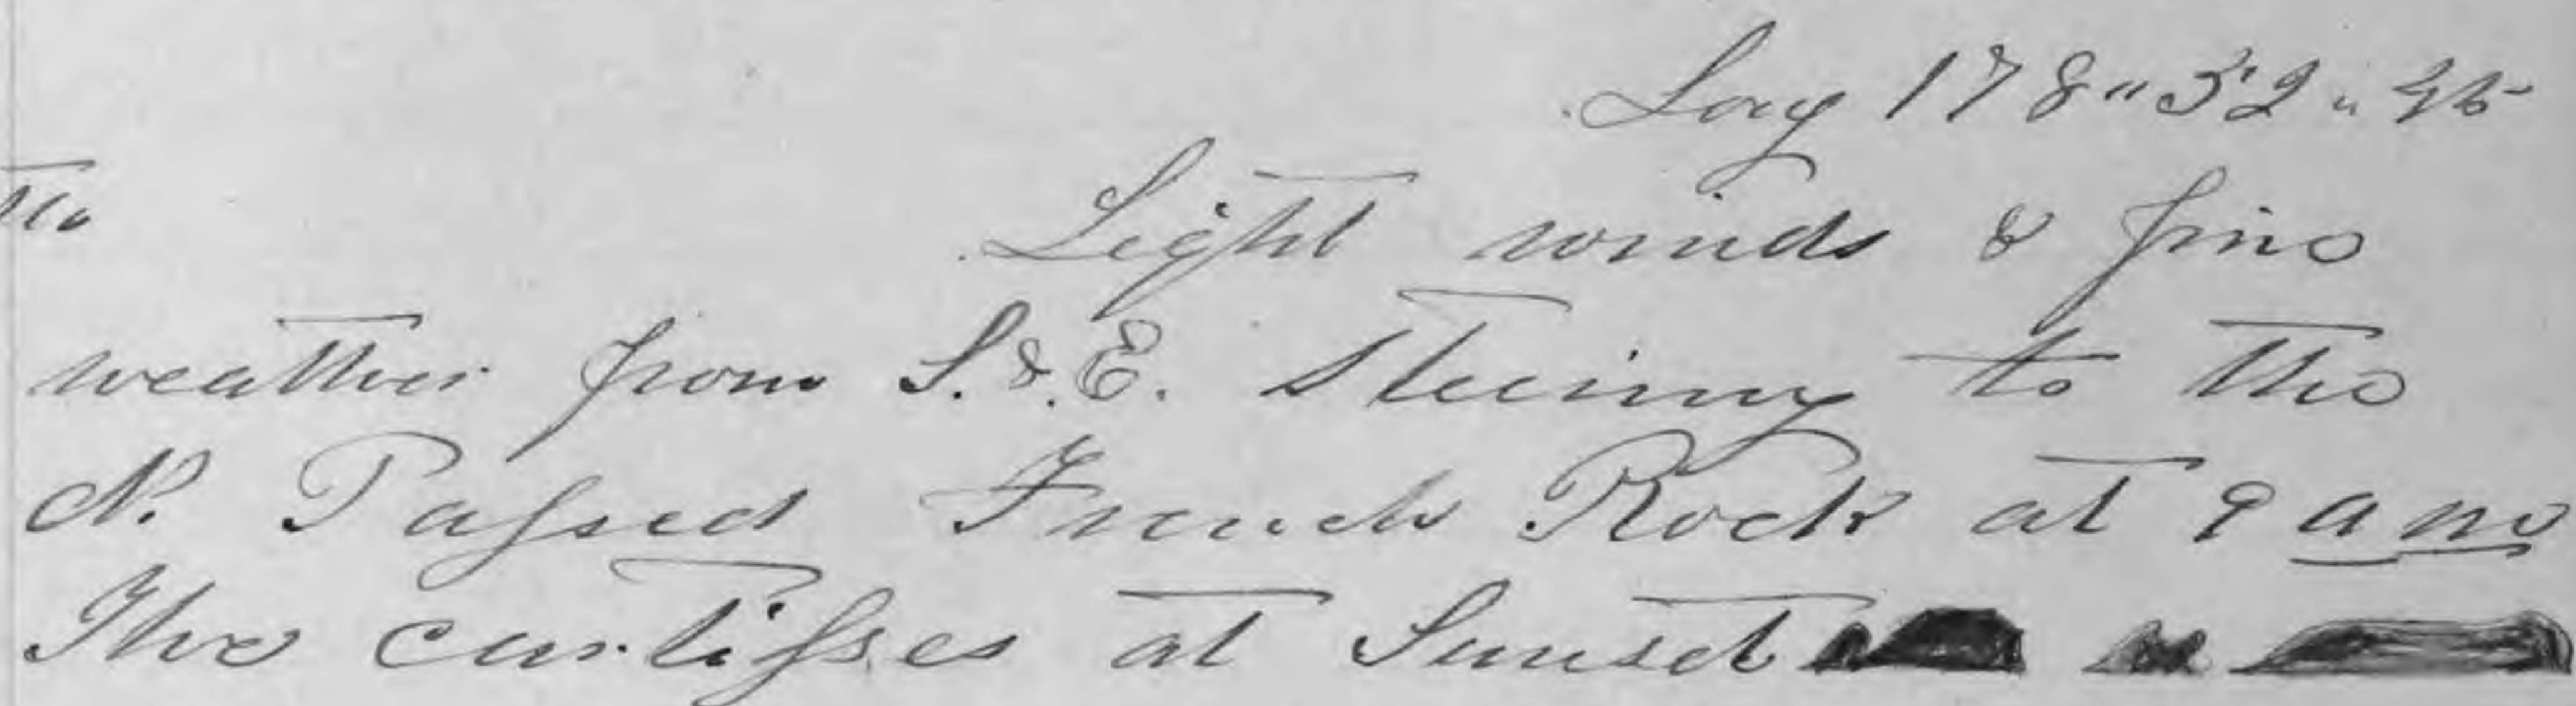 Long 178 " 52 " 45
Light winds & fine
weather from S. & E. Steering to the
N. Passed French Rock at 9 am
The curtisses at Sunset